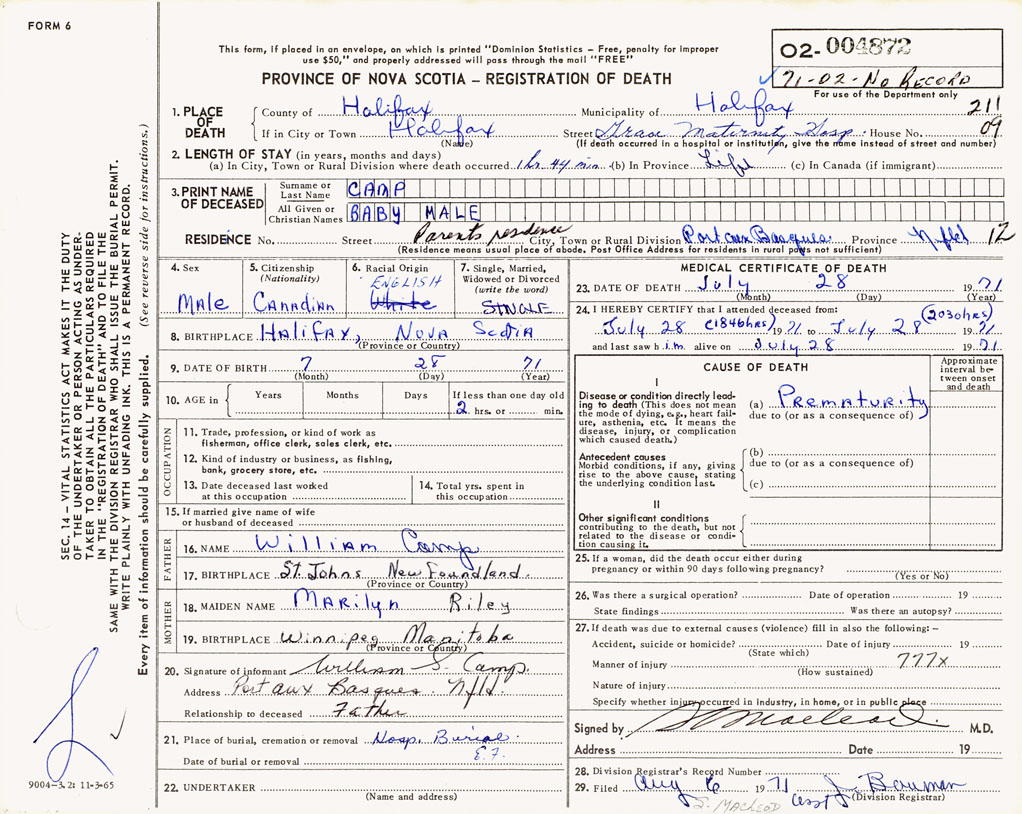 FORM 6
This form, if placed in an envelope, on which is printed "Dominion Statistics – Free, penalty for improper
use $50," and properly addressed will pass through the mail "FREE"
PROVINCE OF NOVA SCOTIA – REGISTRATION OF DEATH
02- 004872
✓ 71-02-No RECORD
For use of the Department only
211
09
1. PLACE OF DEATH
County of Halifax Municipality of Halifax
If in City or Town Halifax Street Grace Maternity Hosp. House No.
(Name) (If death occurred in a hospital or institution, give the name instead of street and number)
2. LENGTH OF STAY (in years, months and days)
(a) In City, Town or Rural Division where death occurred 1 hr 44 min. (b) In Province Life (c) In Canada (if immigrant)
3. PRINT NAME OF DECEASED
Surname or Last Name CAMP
All Given or Christian Names BABY MALE
RESIDENCE No. Street Parents residence City, Town or Rural Division Port aux Basques Province Nfld 12
(Residence means usual place of abode. Post Office Address for residents in rural parts not sufficient)
4. Sex
Male
5. Citizenship (Nationality)
Canadian
6. Racial Origin
ENGLISH
White
7. Single, Married, Widowed or Divorced (write the word)
SINGLE
8. BIRTHPLACE Halifax, Nova Scotia
(Province or Country)
9. DATE OF BIRTH 7 28 71
(Month) (Day) (Year)
10. AGE in Years Months Days If less than one day old
2 hrs. or min.
OCCUPATION
11. Trade, profession, or kind of work as
fisherman, office clerk, sales clerk, etc.
12. Kind of industry or business, as fishing,
bank, grocery store, etc.
13. Date deceased last worked
at this occupation
14. Total yrs. spent in
this occupation
15. If married give name of wife
or husband of deceased
FATHER
16. NAME William Camp
17. BIRTHPLACE St. Johns New Foundland.
(Province or Country)
MOTHER
18. MAIDEN NAME Marilyn Riley
19. BIRTHPLACE Winnipeg Manitoba
(Province or Country)
20. Signature of informant William S. Camp.
Address Port aux Basques. Nfld.
Relationship to deceased Father
21. Place of burial, cremation or removal Hosp. Burial.
Date of burial or removal
22. UNDERTAKER
(Name and address)
MEDICAL CERTIFICATE OF DEATH
23. DATE OF DEATH July 28 1971
(Month) (Day) (Year)
24. I HEREBY CERTIFY that I attended deceased from: (2030hrs)
July 28 (1846hrs) 1971 to July 28 1971
and last saw him alive on July 28 1971
CAUSE OF DEATH
Approximate interval between onset and death
I
Disease or condition directly leading to death (This does not mean the mode of dying, e.g., heart failure, asthenia, etc. It means the disease, injury, or complication which caused death.)
(a) Prematurity
due to (or as a consequence of)
Antecedent causes
Morbid conditions, if any, giving rise to the above cause, stating the underlying condition last.
(b)
due to (or as a consequence of)
(c)
II
Other significant conditions
contributing to the death, but not related to the disease or condition causing it.
25. If a woman, did the death occur either during
pregnancy or within 90 days following pregnancy?
(Yes or No)
26. Was there a surgical operation? Date of operation 19
State findings Was there an autopsy?
27. If death was due to external causes (violence) fill in also the following:–
Accident, suicide or homicide? Date of injury 19
(State which)
Manner of injury 777x
(How sustained)
Nature of injury
Specify whether injury occurred in industry, in home, or in public place
Signed by Macleod M.D.
Address Date 19
28. Division Registrar's Record Number
29. Filed Aug 6 1971 Asst J. Bowman
(Division Registrar)
S. MACLEOD
SEC. 14 – VITAL STATISTICS ACT MAKES IT THE DUTY
OF THE UNDERTAKER OR PERSON ACTING AS UNDER-
TAKER TO OBTAIN ALL THE PARTICULARS REQUIRED
IN THE "REGISTRATION OF DEATH" AND TO FILE THE
SAME WITH THE DIVISION REGISTRAR WHO SHALL ISSUE THE BURIAL PERMIT.
WRITE PLAINLY WITH UNFADING INK. THIS IS A PERMANENT RECORD.
Every item of information should be carefully supplied. (See reverse side for instructions.)
9004-3.2: 11-3-65